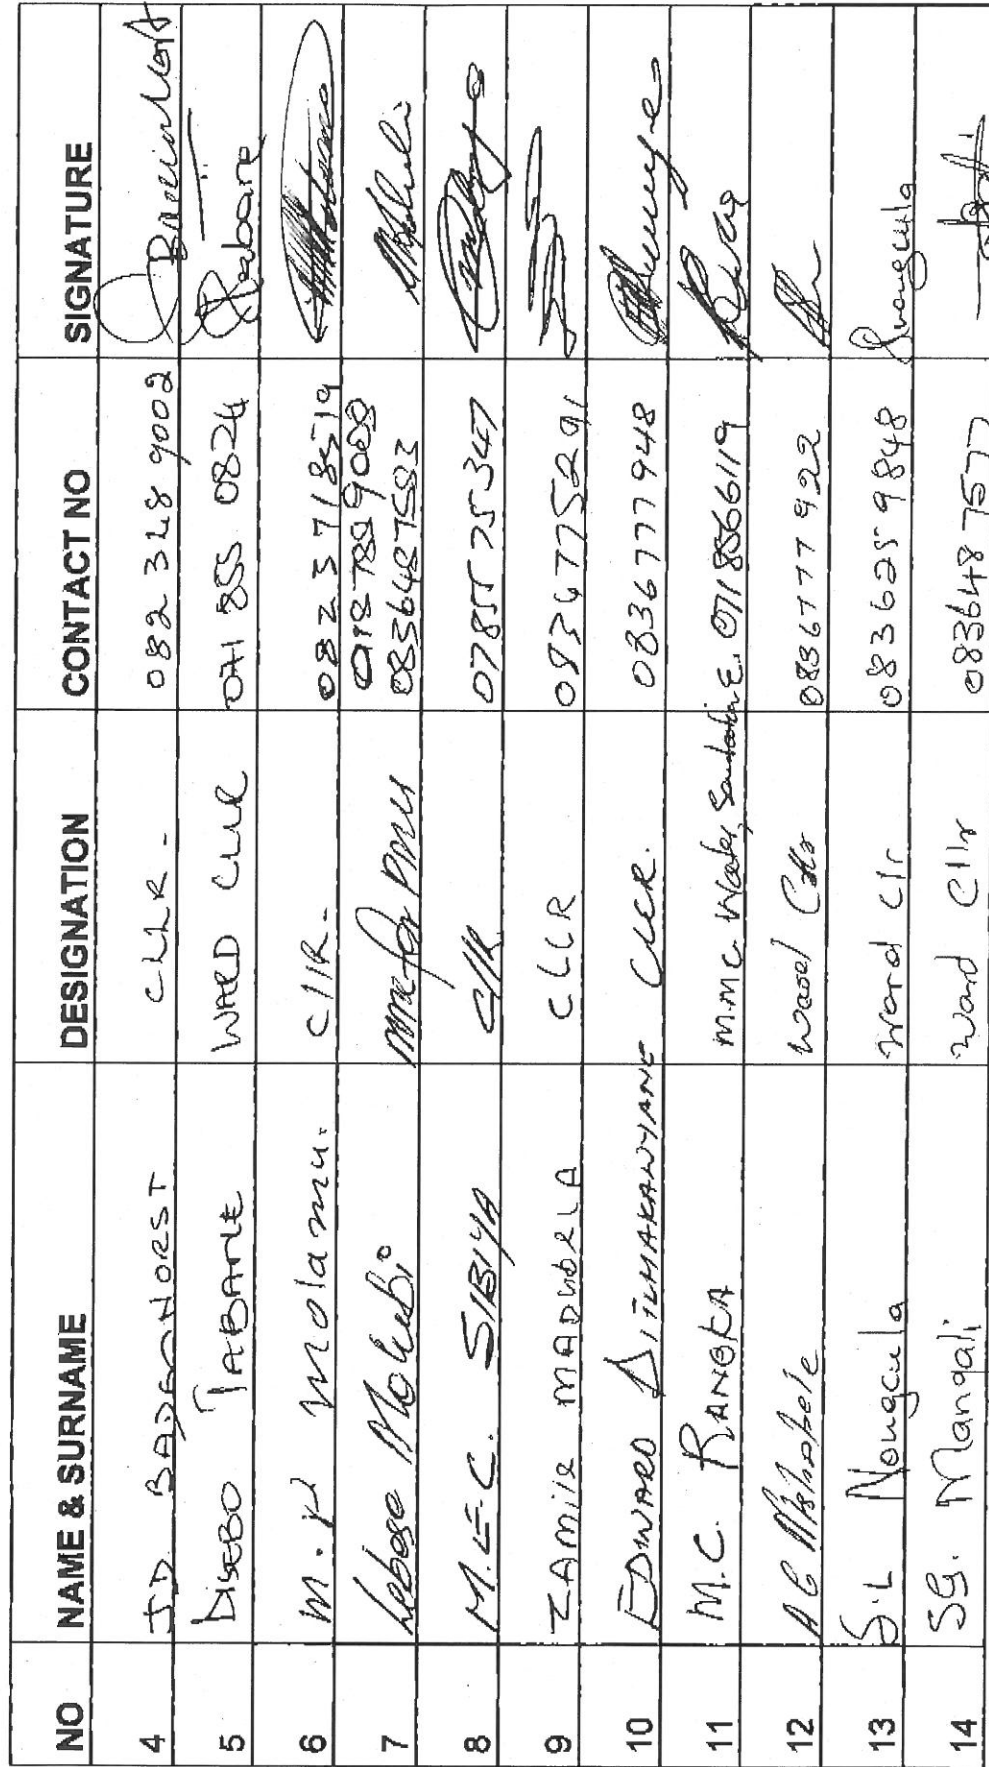 NO NAME & SURNAME DESIGNATION CONTACT NO SIGNATURE
4 JD BADENHORST CLLR - 082 328 9002
5 DISEBO TABANE WARD CLLR 071 855 0824 Tabane
6 M.P Molamu. CllR- 082 3718519
7 Lebogo Mokubi MMC for PMU 0187899008
0836487583
8 M.E.C. SIBIYA CllR 0785575347
9 ZAMILE MADUBELA CLLR 0834775291
10 EDWARD DITLHAKANYANE CLLR. 0836777948
11 M.C. RANGKA M.M.C. Water, Sanitation E. 0718566119
12 A G Mashobele Ward Cllr 0836777922
13 S.L Nongcula Ward Clr 0836259848 Snongcula
14 SG. Mangali Ward Cllr 0836487577